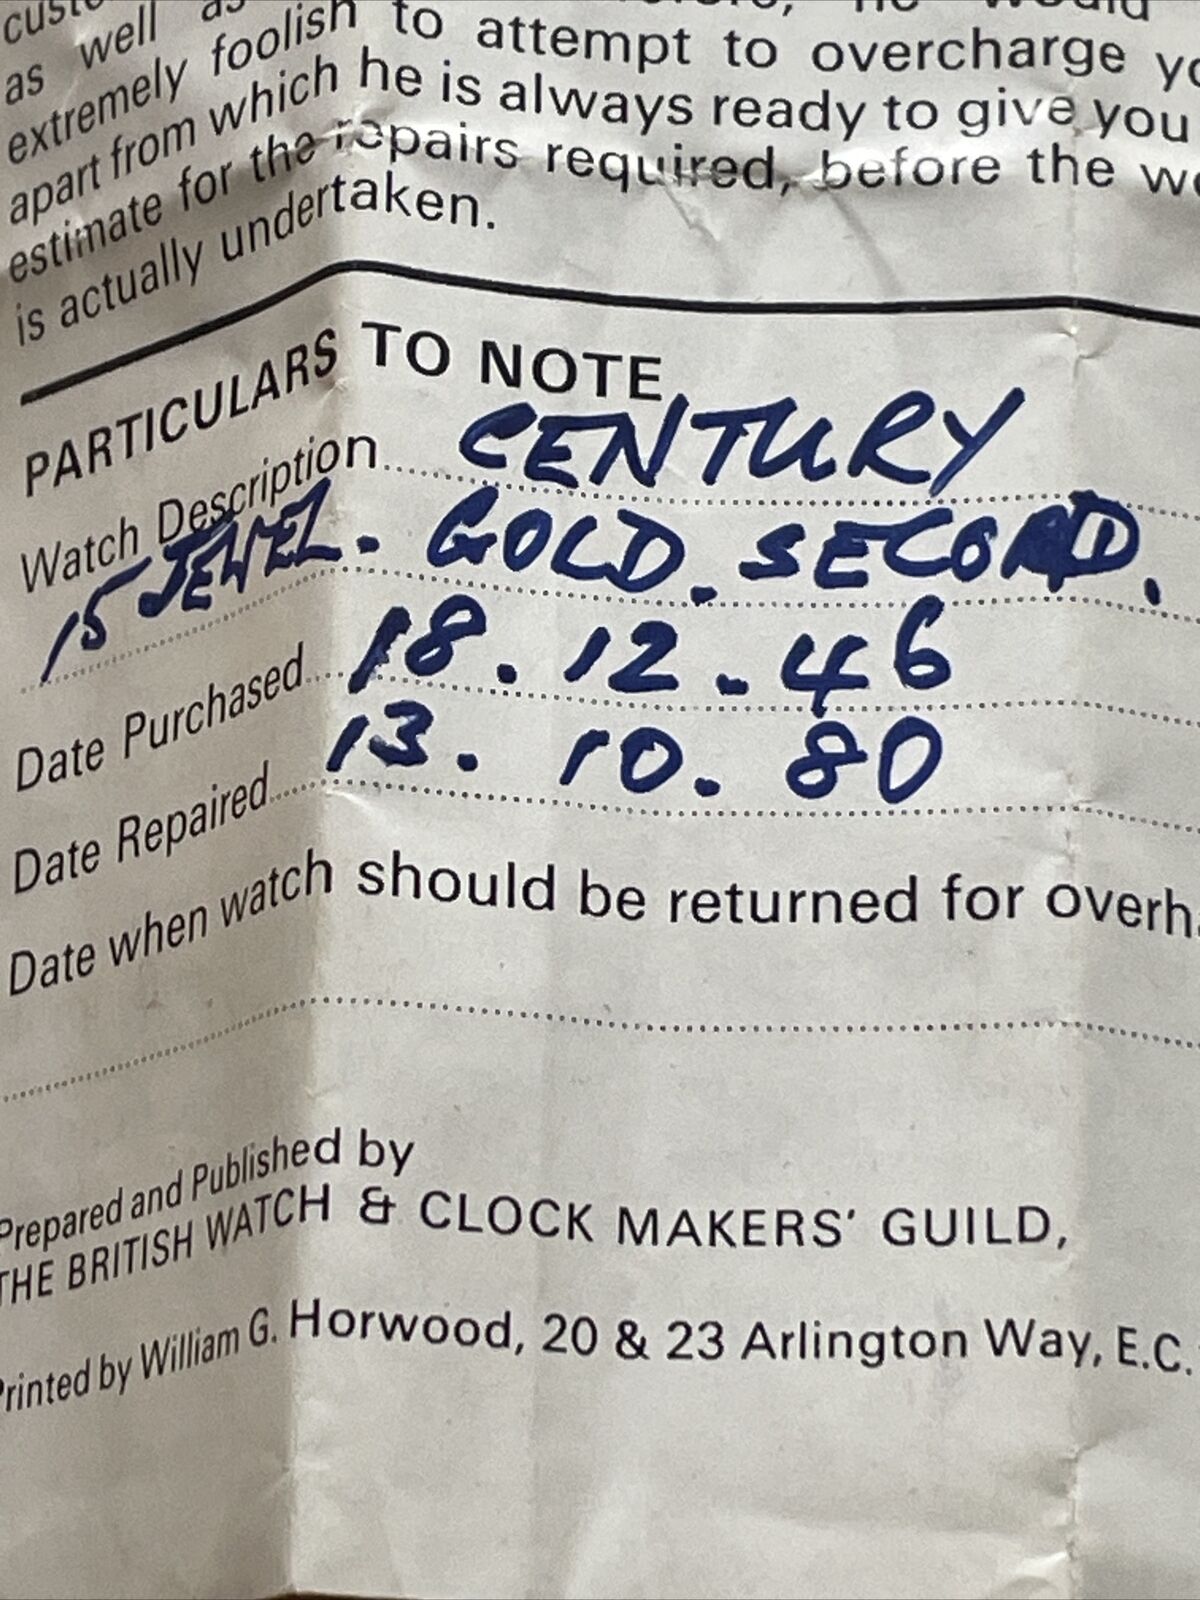 as well as
extremely foolish to attempt to overcharge
apart from which he is always ready to give you
estimate for the repairs required, before the
is actually undertaken.
PARTICULARS TO NOTE
Watch Description CENTURY
15 JEWEL. GOLD. SECOND.
Date Purchased 18.12.46
Date Repaired 13.10.80
Date when watch should be returned for
Prepared and Published by
THE BRITISH WATCH & CLOCK MAKERS' GUILD,
Printed by William G. Horwood, 20 & 23 Arlington Way, E.C.